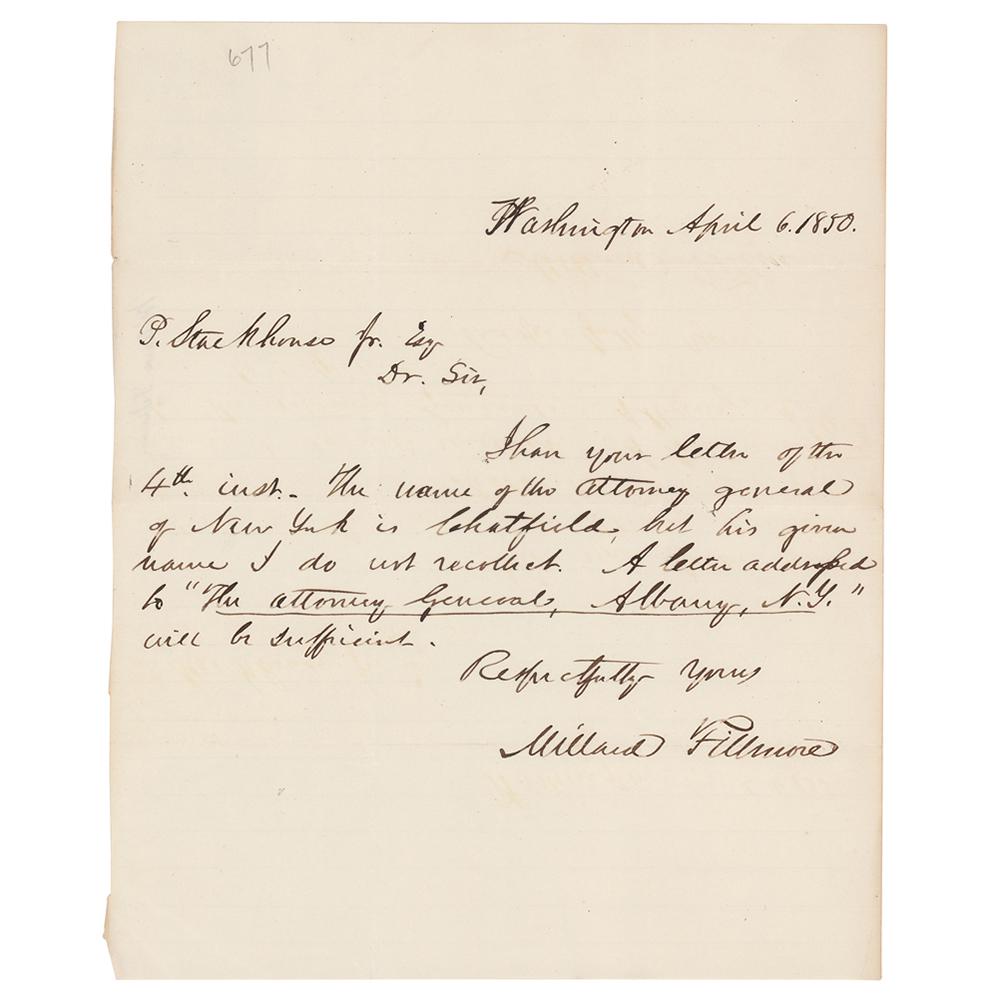 677
Washington April 6. 1850.
P. Stackhouse Jr. Esq
Dr. Sir,
I have your letter of the
4th. inst. - The name of the attorney general
of New York is Chatfield, but his given
name I do not recollect. A letter addressed
to "The attorney General, Albany, N.Y."
will be sufficient.
Respectfully Yours
Millard Fillmore